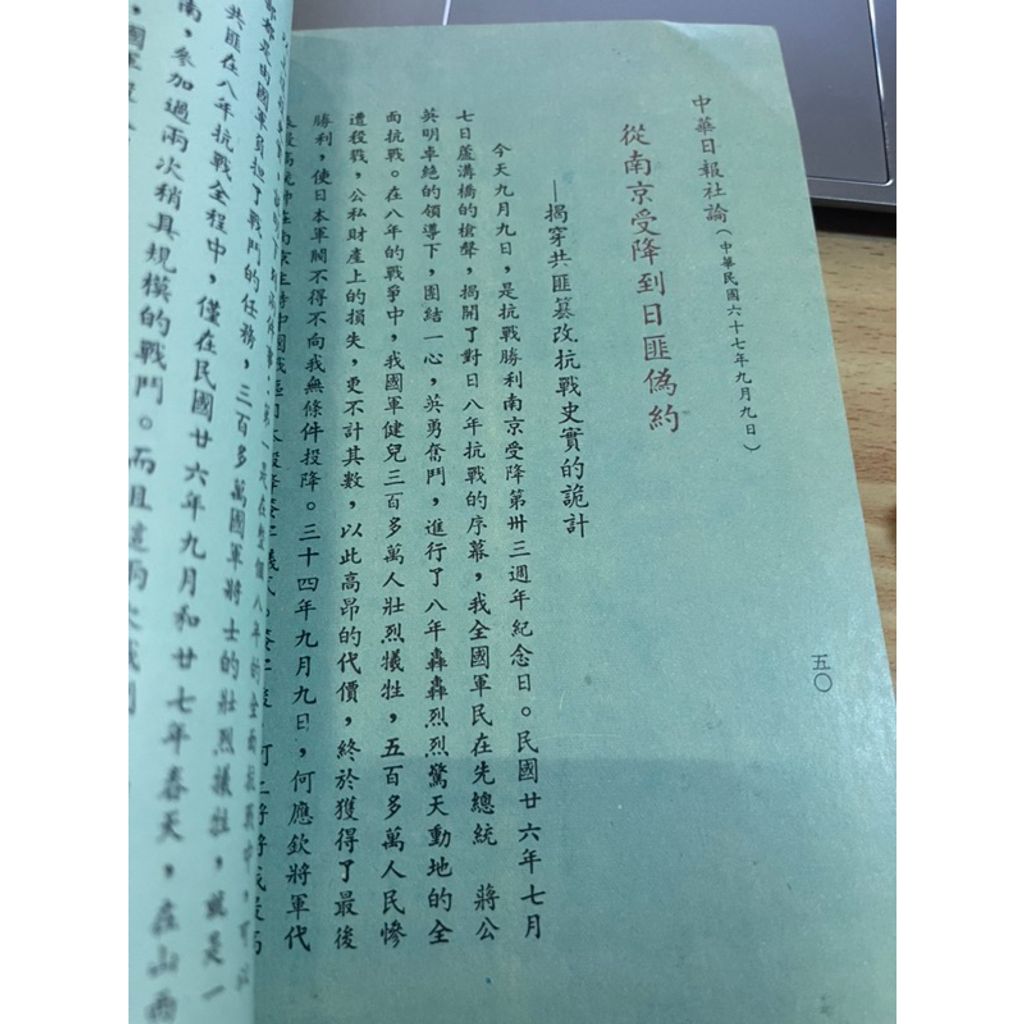 中華日報社論（中華民國六十七年九月九日）
從南京受降到日匪偽約
—揭穿共匪篡改抗戰史實的詭計
今天九月九日，是抗戰勝利南京受降第卅三週年紀念日。民國廿六年七月
七日蘆溝橋的槍聲，揭開了對日八年抗戰的序幕，我全國軍民在先總統　蔣公
英明卓絕的領導下，團結一心，英勇奮鬥，進行了八年轟轟烈烈驚天動地的全
面抗戰。在八年的戰爭中，我國軍健兒三百多萬人壯烈犧牲，五百多萬人民慘
遭殺戮，公私財產上的損失，更不計其數，以此高昂的代價，終於獲得了最後
勝利，使日本軍閥不得不向我無條件投降。三十四年九月九日，何應欽將軍代
五〇
是在整個八年的全面抗戰中，可以
都是由國軍負担了戰鬥的任務，三百多萬國軍將士的壯烈犧牲，就是一
共匪在八年抗戰全程中，僅在民國廿六年九月和廿七年春天，在山西
南，參加過兩次稍具規模的戰鬥。而且這兩次戰